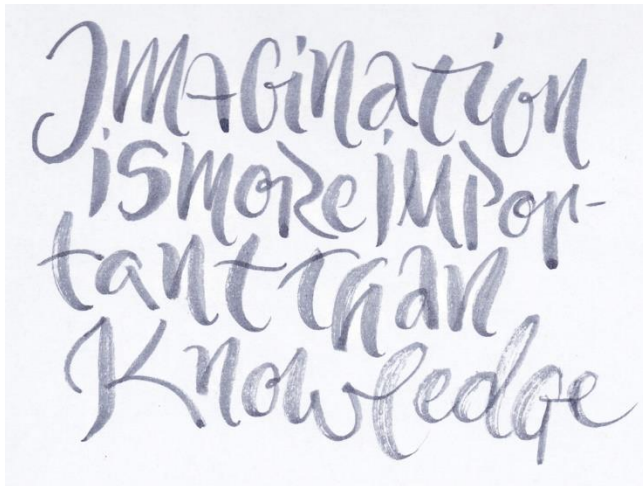 Imagination
is more impor-
tant than
Knowledge